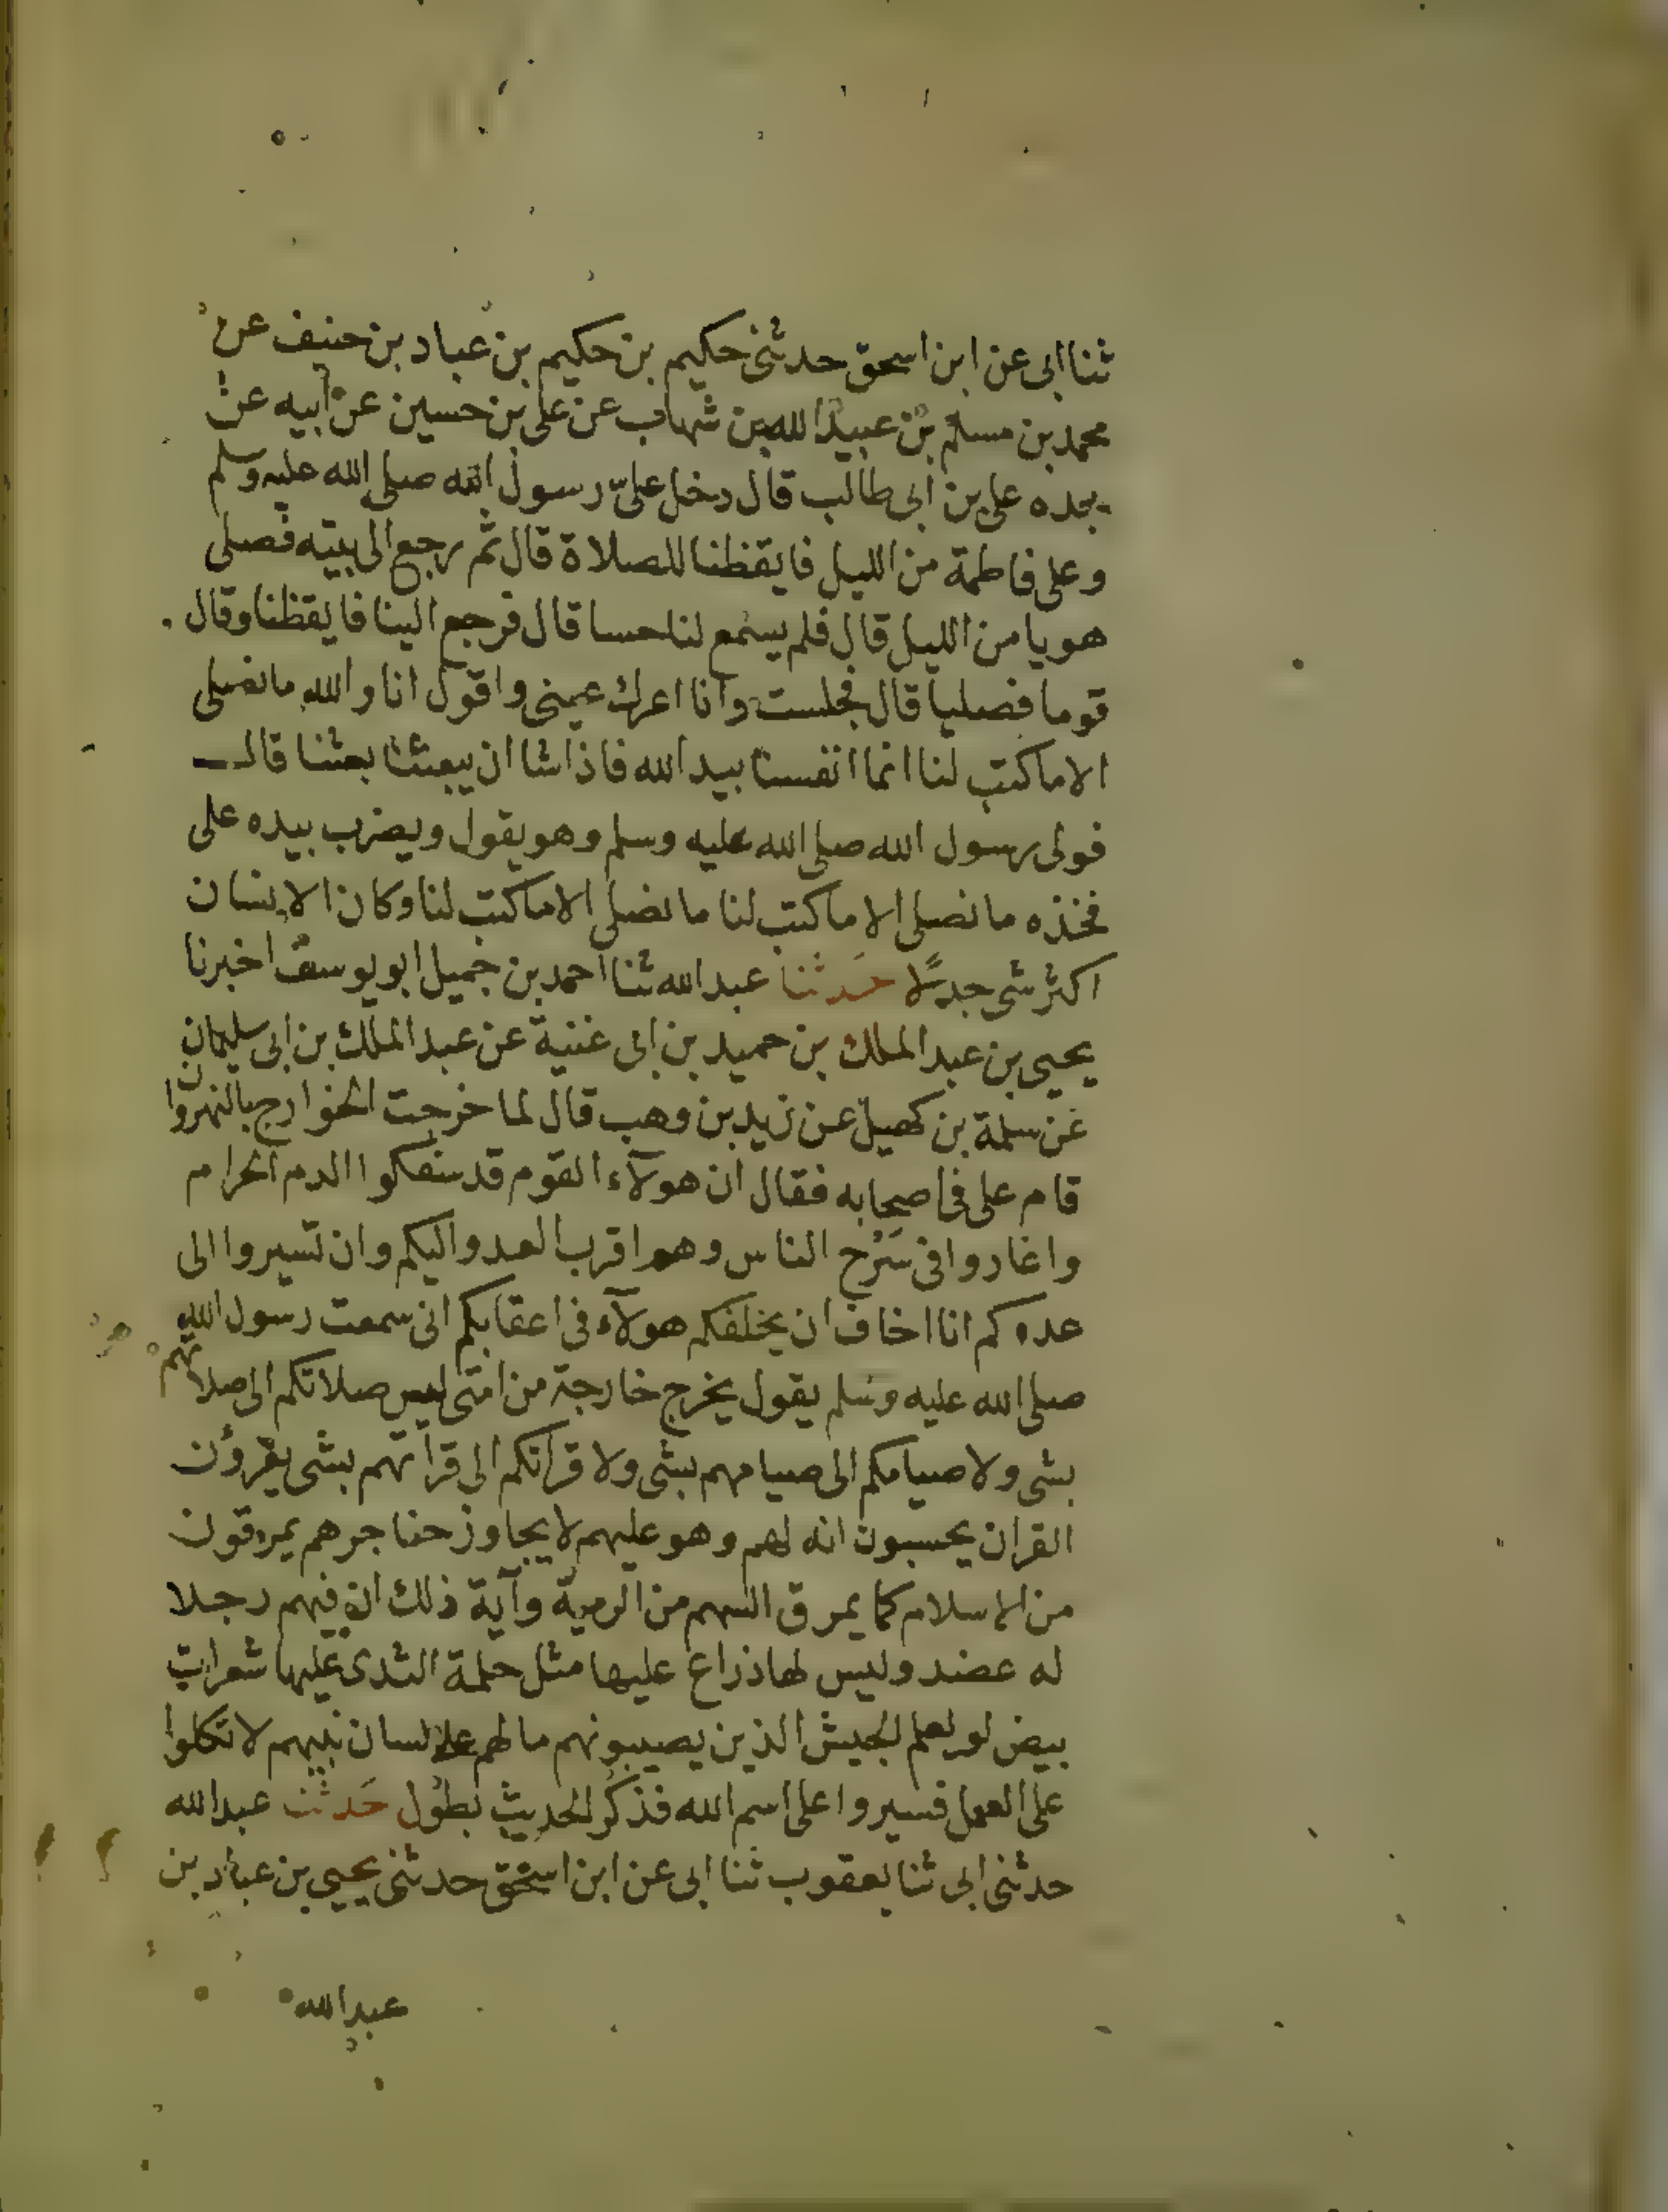 ثنا ابى عن ابن اسحق حدثنى حكيم بن حكيم بن عباد بن حنيف عن
محمد بن مسلم بن عبيد الله بن شهاب عن على بن حسين عن ابيه عن
جده على بن ابى طالب قال دخل علىّ رسول الله صلى الله عليه وسلم
وعلى فاطمة من الليل فايقظنا للصلاة قال ثم رجع الى بيته فصلى
هويا من الليل قال فلم يسمع لنا حسا قال فرجع الينا فايقظنا وقال
قوما فصليا قال فجلست وانا اعرك عينى واقول انا والله ما نصلى
الا ما كتب لنا انما انفسنا بيد الله فاذا شا ان يبعثنا بعثنا قال
فولى رسول الله صلى الله عليه وسلم وهو يقول ويضرب بيده على
فخذه ما نصلى الا ما كتب لنا ما نصلى الا ما كتب لنا وكان الانسان
اكثر شى جدلًا حدثنا عبد الله ثنا احمد بن جميل ابو يوسف اخبرنا
يحيى بن عبد الملك بن حميد بن ابى غنية عن عبد الملك بن ابى سليمان
عن سلمة بن كهيل عن زيد بن وهب قال لما خرجت الخوارج بالنهروان
قام على فى اصحابه فقال ان هولآء القوم قد سفكوا الدم الحرام
واغاروا فى سَرْح الناس وهم اقرب العدو اليكم وان تسيروا الى
عدوكم انا اخاف ان يخلفكم هولآء فى اعقابكم انى سمعت رسول الله
صلى الله عليه وسلم يقول يخرج خارجة من امتى ليس صلاتكم الى صلاتهم
بشى ولا صيامكم الى صيامهم بشى ولا قرأتكم الى قرأتهم بشى يقرؤن
القران يحسبون انه لهم وهو عليهم لا يجاوز حناجرهم يمرقون
من الاسلام كما يمرق السهم من الرمية وآية ذلك ان فيهم رجلا
له عضد وليس لها ذراع عليها مثل حلمة الثدى عليها شعرات
بيض لو يعلم الجيش الذين يصيبونهم ما لهم على لسان نبيهم لاتكلوا
على العمل فسيروا على اسم الله فذكر الحديث بطول حَدثنا عبد الله
حدثنى ابى ثنا يعقوب ثنا ابى عن ابن اسحق حدثنى يحيى بن عباد بن
عبد الله